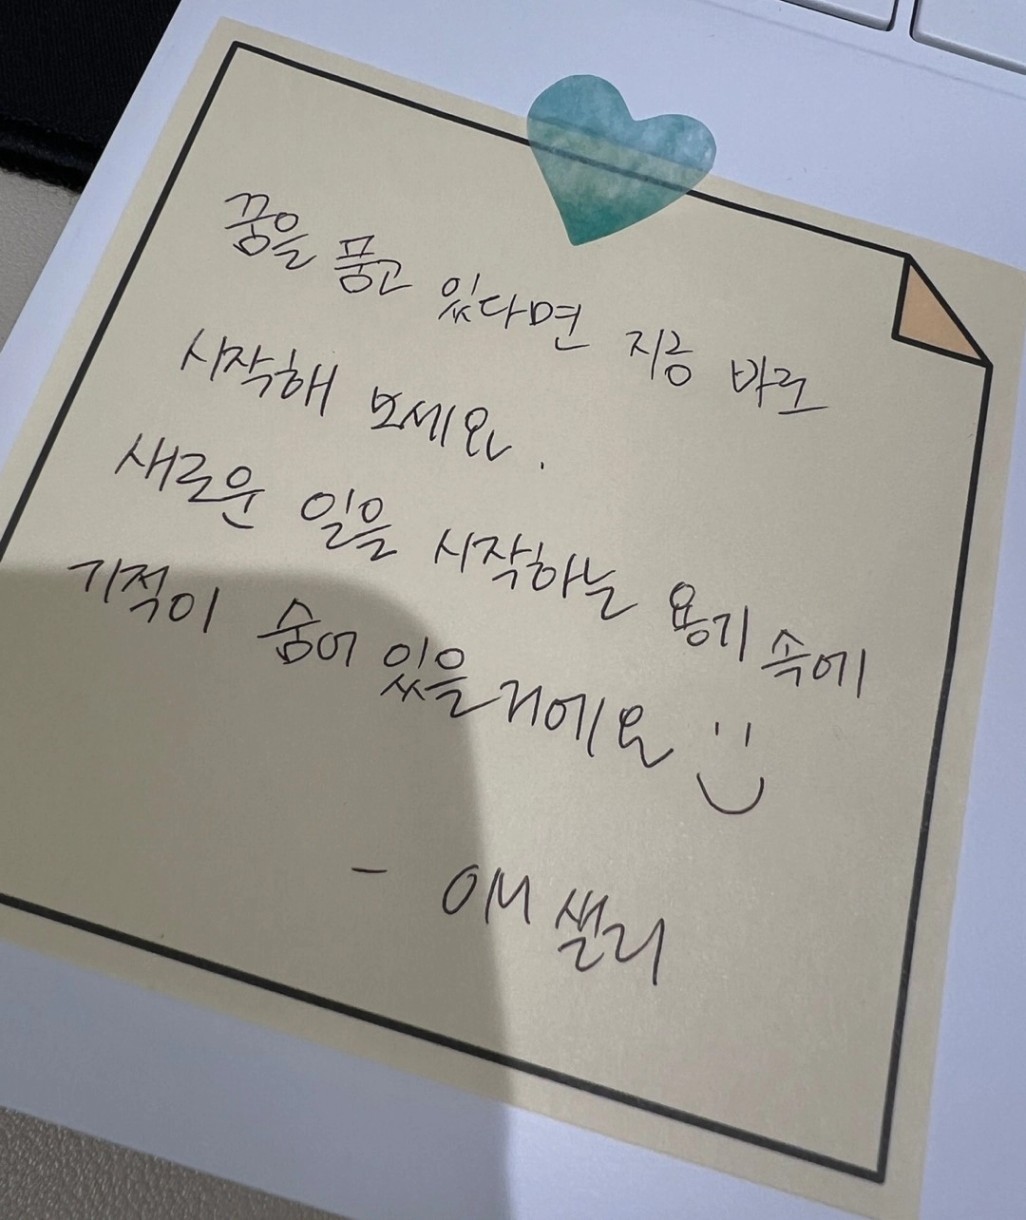 꿈을 품고 있다면 지금 바로
시작해 보세요.
새로운 일을 시작하는 용기 속에
기적이 숨어 있을거에요
- 애샐리